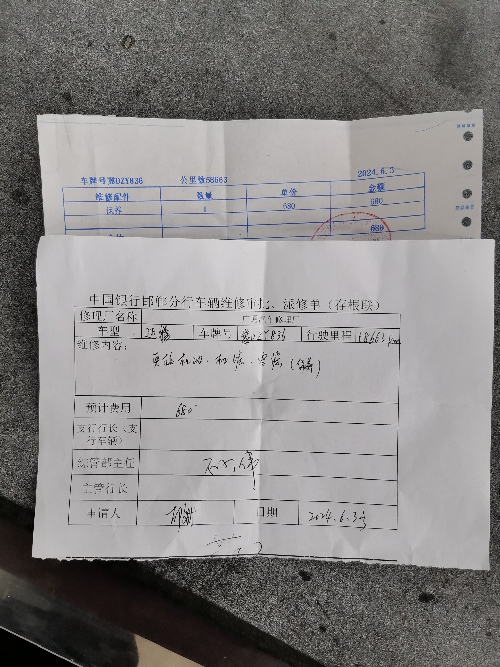 车牌号冀DZY836 公里数58663 2024.6.3
维修配件 数量 单价 金额
保养 1 680 680
680
中国银行邯郸分行车辆维修审批、派修单（存根联）
修理厂名称 汽车修理厂
车型 车牌号 冀DZY836 行驶里程
维修内容：
更换机油、机滤、空滤（保养）
预计费用 680
支行行长（支
行车辆）
综管部主任
主管行长
申请人 日期 2024.6.3号